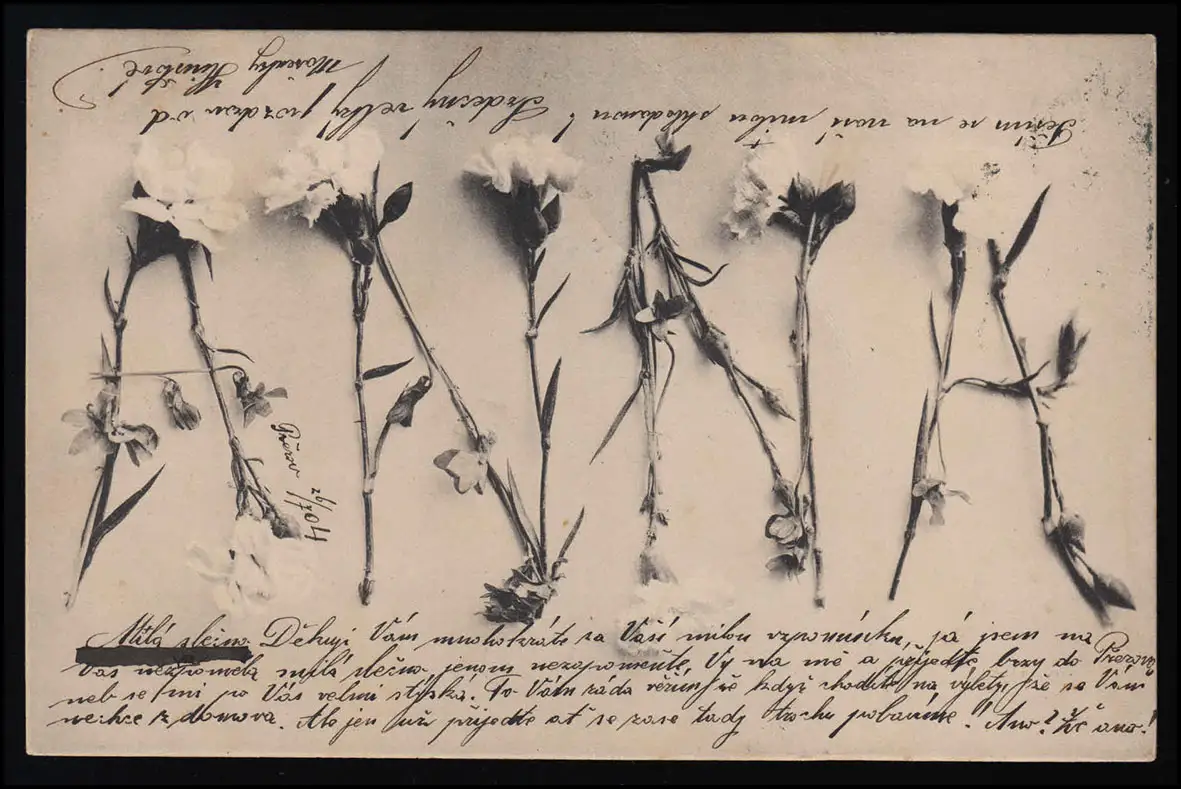 ANNA
Přerov 26/7 04
Milá slečno Děkuji Vám mnohokráte za Vaší milou vzpomínku, já jsem na
Vás nezapoměla milá slečno, jenom nezapomeňte, Vy na mě a přijeďte brzy do Přerova
neb se mi po Vás velmi stýská. To Vám ráda věřím že když chodíte na výlety, že se Vám
nechce z domova. Ale jen už přijeďte ať se zase tady trochu pobavíme! Ano? Že ano!
Těším se na naší milou shledanou! Srdečný velký pozdrav od
Mařenky